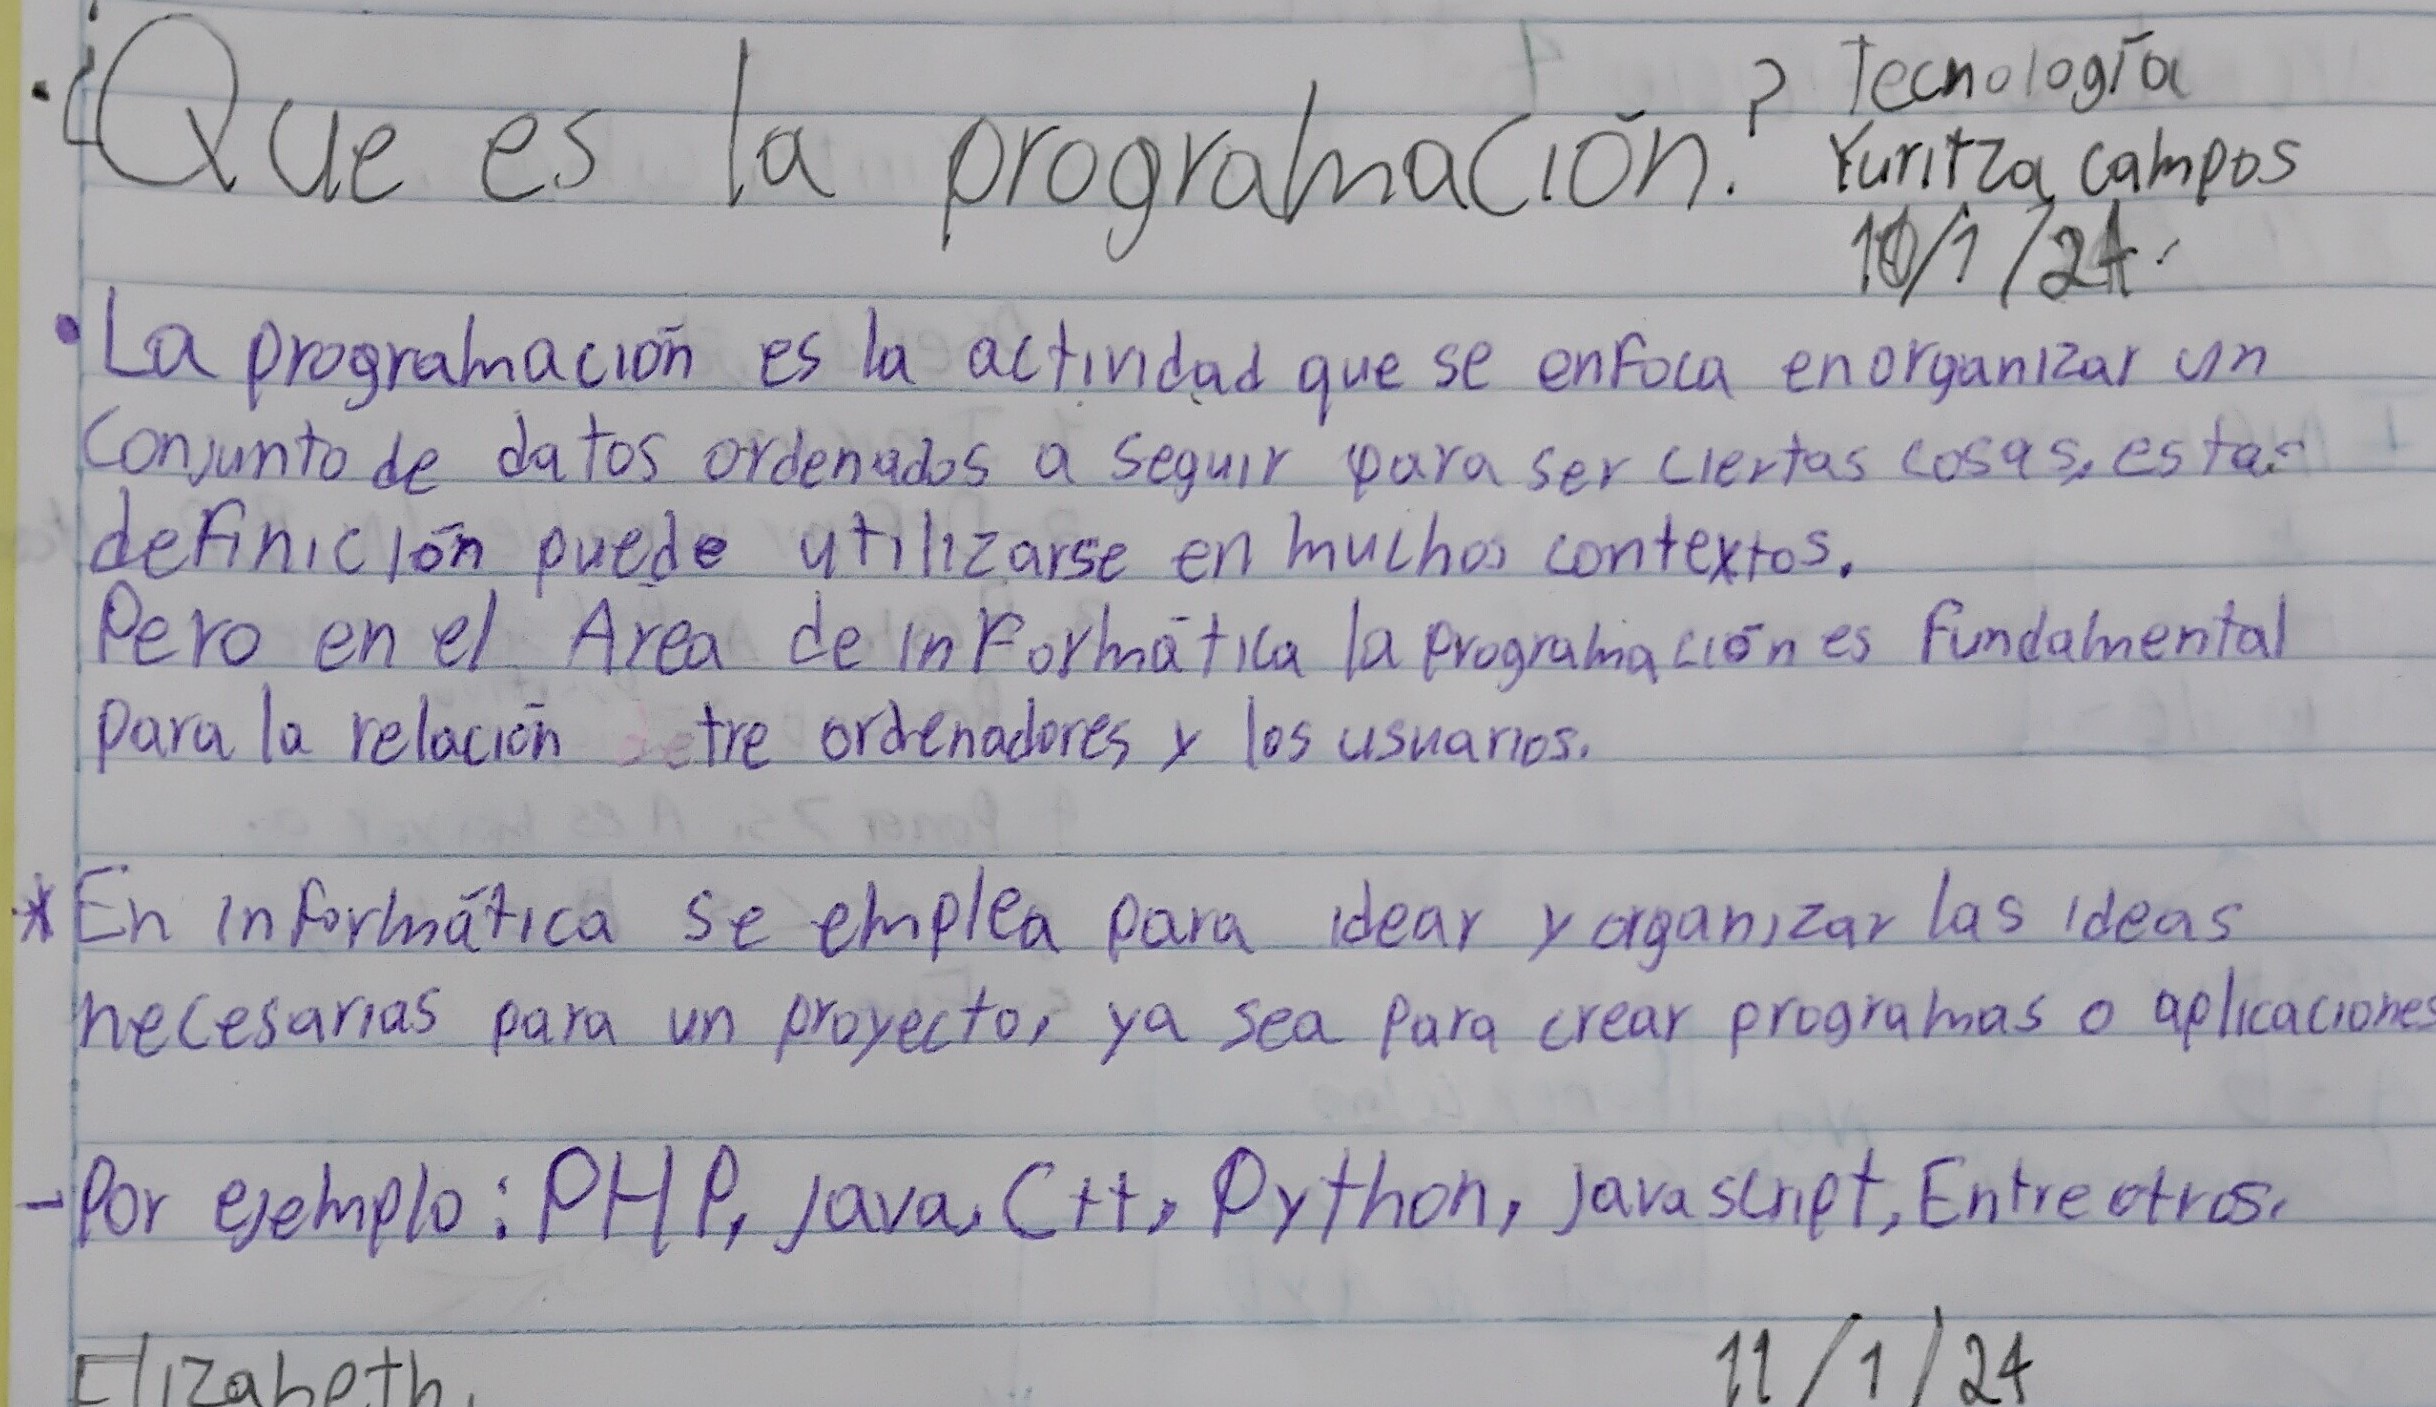 ¿Que es la programación.?
Tecnología
Yuritza campos
10/1/24.
• La programación es la actividad que se enfoca en organizar un
conjunto de datos ordenados a seguir para ser ciertas cosas, esta
definición puede utilizarse en muchos contextos.
Pero en el Area de informática la programación es fundamental
para la relación etre ordenadores y los usuarios.
* En informática se emplea para idear y organizar las ideas
necesarias para un proyecto, ya sea para crear programas o aplicaciones
- Por ejemplo: PHP, java, C++, Python, javascript, Entre otros.
Elizabeth.
11/1/24